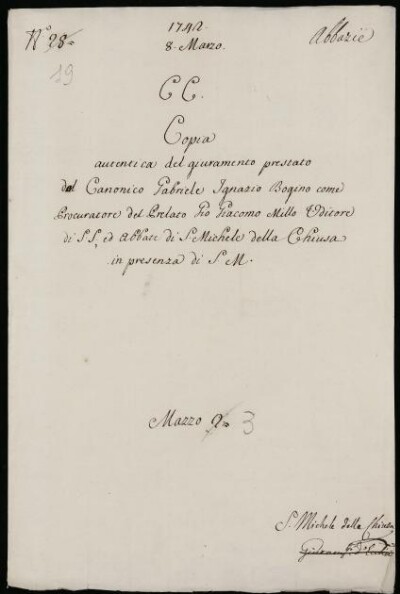 1742.
N.º 28=
8. Marzo.
Abbazie
19
C C.
Copia
autentica del giuramento prestato
dal Canonico Gabriele Ignazio Bogino come
Procuratore del Prelato Pio Giacomo Millo Uditore
di S.S., ed Abbate di S. Michele della Chiusa
in presenza di S. M.
Mazzo 2= 3
S. Michele della Chiusa